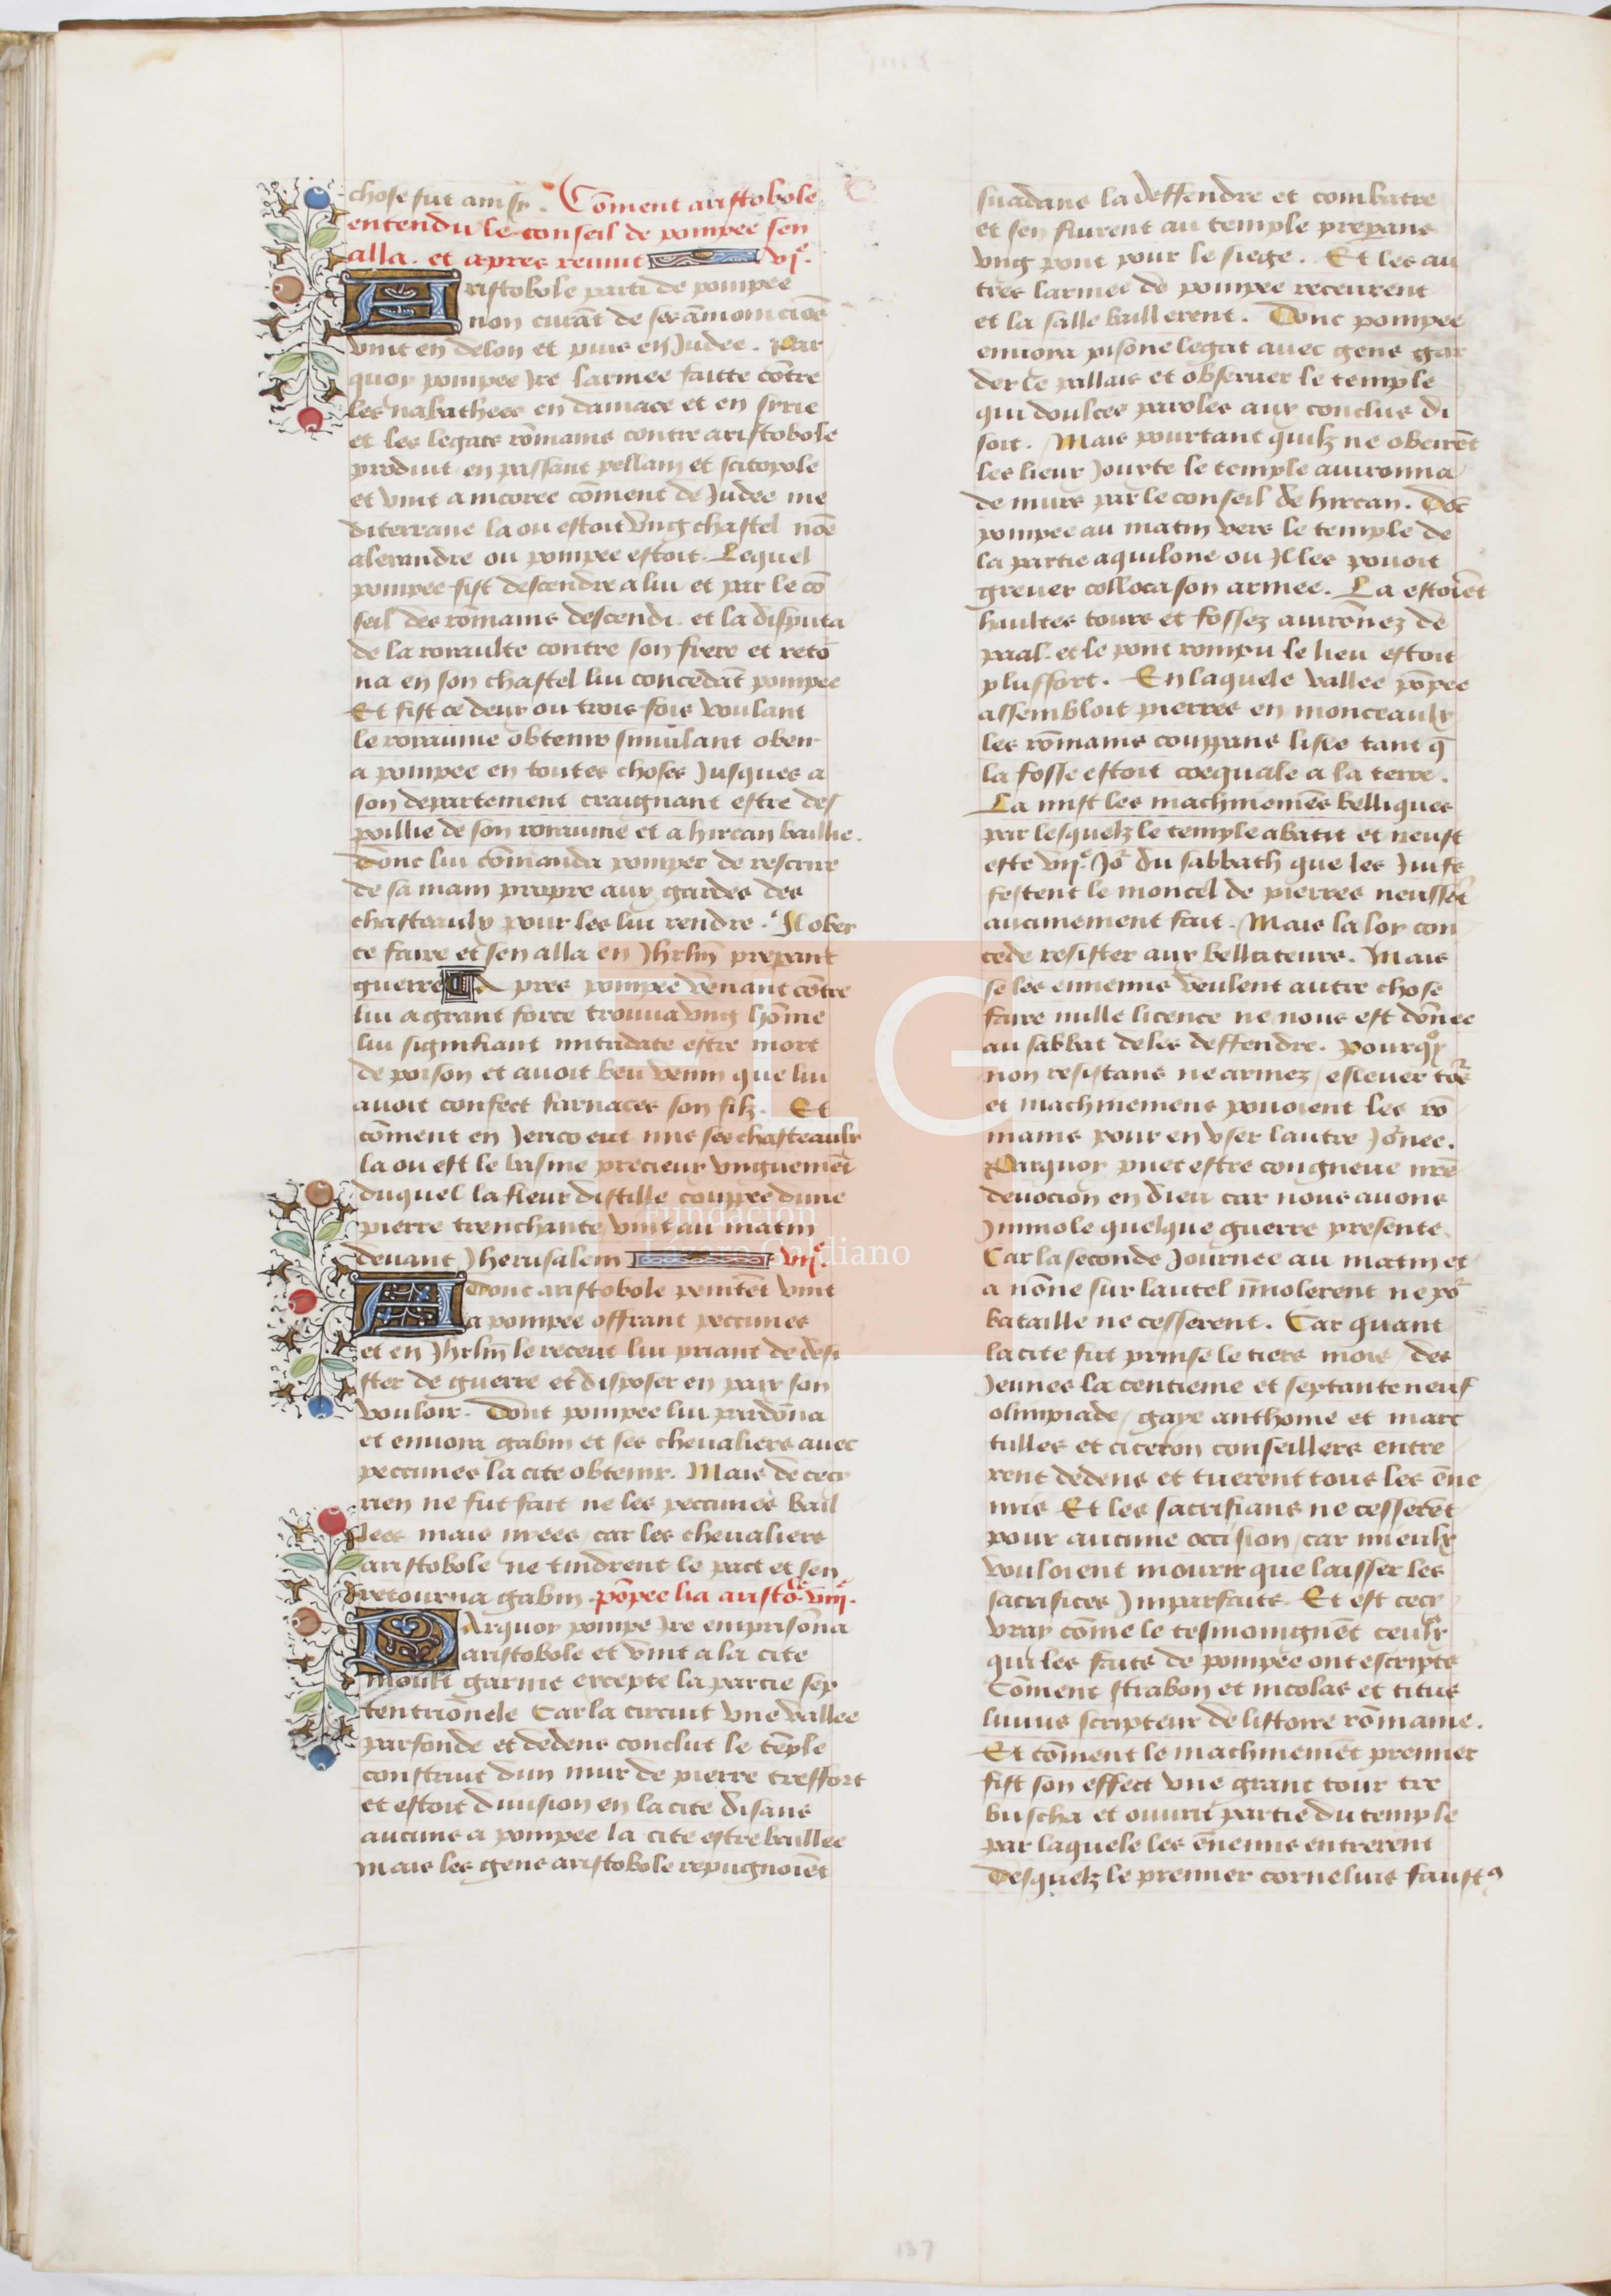 chose fut ainsy. Cõment aristobole
entendu le conseil de pompee sen
alla. et apres reuint vjᵉ.
Aristobole parti de pompee
non curãt de ses ãmonicions
vint en delon et puis en Judee. Par
quoy pompee Jre larmee faitte cõtre
les nabathees en damace et en sirie
et les legats rõmains contre aristobole
produit en passant pellam et scitopole
et vint a incoree cõment de Judee me
diterrane la ou estoit vng chastel nõe
alexandre ou pompee estoit. Lequel
pompee fist descendre a lui et par le cõ
seil des rõmains descendi. et la disputa
de la roiaulte contre son frere et retõ
na en son chastel lui concedãt pompee
Et fist ce deux ou trois fois voulant
le roiaume obtenir simulant obeir
a pompee en toutes choses Jusques a
son departement craignant estre des
poillie de son roiaume et a hircan baillie.
Donc lui cõmanda pompee de rescrire
de sa main propre aux gardes des
chasteaulx pour les lui rendre. Il obey
ce faire et sen alla en Jhrlm̃ prepant
guerre Apres pompee venant cõtre
lui a grant force trouua vng hõme
lui signifiant mitridate estre mort
de poison et auoit beu venin que lui
auoit confect farnaces son filz. Et
cõment en Jerico eut mis ses chasteaulx
la ou est le basme precieux vnguemẽt
duquel la fleur distille coupee dune
pierre trenchante vint au matin
deuant Jherusalem vijᵉ.
ADonc aristobole penitẽt vint
a pompee offrant peccunes
et en Jhrlm̃ le receut lui priant de desi
ster de guerre et disposer en paix son
vouloir. Dont pompee lui pardõna
et enuoia gabin et ses cheualiers auec
peccunes la cite obtenir. Mais de cecy
rien ne fut fait ne les peccunes bail
lees mais irees car les cheualiers
aristobole ne tindrent le pact et sen
retourna gabin. põpee lia aristoᵇˡᵉ. viijᵉ.
PArquoy pompe Jre emprisõna
aristobole et vint a la cite
moult garnie excepte la partie sep
tentrionele Car la circuit vne vallee
parfonde et dedens conclut le tẽple
construit dun mur de pierre tressort
et estoit diuision en la cite disans
aucuns a pompee la cite estre baillee
Mais les gens aristobole repugnoiẽt
suadans la deffendre et combatre
et sen fiurent au temple prepans
vng pont pour le siege. Et les au
tres larmee de pompee receurent
et la salle baillerent. Donc pompee
enuoia pisone legat auec gens gar
der le pallais et obseruer le temple
qui doulces paroles aux conclus di
soit. Mais pourtant quilz ne obeirẽt
les lieux Jouxte le temple auironna
de murs par le conseil de hircan. Dõc
pompee au matin vers le temple de
la partie aquilone ou Il les pouoit
greuer colloca son armee. La estoiẽt
haultes tours et fossez auirõnez de
paal. et le pont rompu le lieu estoit
plussort. En laquele vallee põpee
assembloit pierres en monceaulx
les rõmains couppans lisle tant q̃
la fosse estoit coequale a la terre.
La mist les machinemẽs belliques
par lesquelz le temple abatit et neust
este vijᵉ. Jõ du sabbath que les Juifs
festent le moncel de pierres neussẽt
aucunement fait. Mais la loy con
cede resister aux bellateurs. Mais
se les ennemis veulent autre chose
faire nulle licence ne nous est dõnee
au sabbat de les deffendre. pourqͦy
non resistans ne armez / esleuer tõrs
et machinemens pouoient les rõ
mains pour en vser lautre Jõnee.
Parquoy puet estre congneue nr̃e
deuocion en dieu car nous auons
Jmmole quelque guerre presente.
Car la seconde Journee au matin et
a nõne sur lautel ĩmolerent ne põ
bataille ne cesserent. Car quant
la cite fut prinse le tiers mois / des
Jeunes la centieme et septanteneuf
olimpiade / gaye anthome et marc
tulles et ciceron conseillers entre
rent dedens et tuerent tous les ẽne
mis Et les sacrifians ne cesserẽt
pour aucune occision / car mieulx
vouloient mourir que laisser les
sacrifices Jmparfaits. Et est cecy
vray cõme le tesmoingnẽt ceulx
qui les faits de pompee ont escripts
Cõment strabon et nicolas et titus
liuius scripteur de listoire rõmaine.
Et cõment le machinemẽt premier
fist son effect vne grant tour tre
buscha et ouurit partie du temple
par laquele les ẽnemis entrerent
Desquelz le premier cornelius faustꝯ
137
FLG
Fundación
Lázaro Galdiano